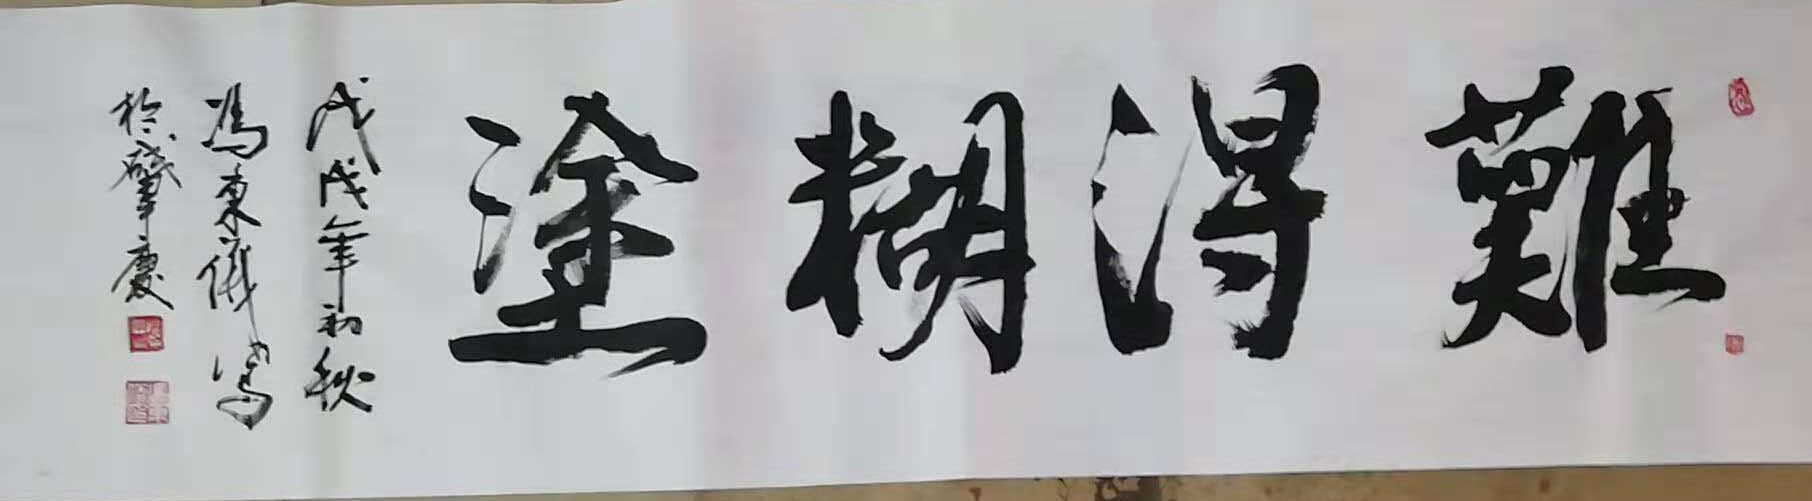 難得糊塗
戊戌年初秋
馮東儀寫
於砚肇慶